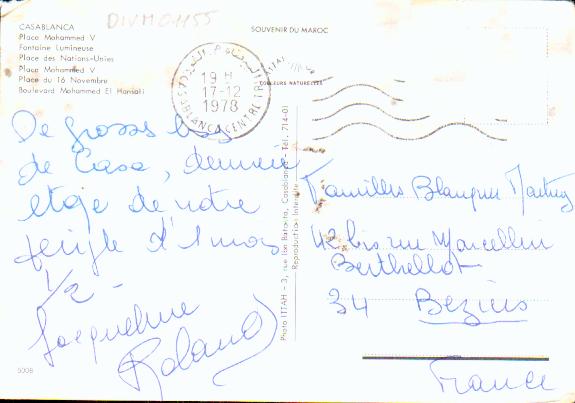 DIVM04155
CASABLANCA
Place Mohammed V
Fontaine Lumineuse
Place des Nations-Unies
Place Mohammed V
Place du 16 Novembre
Boulevard Mohammed El Hansali
SOUVENIR DU MAROC
COULEURS NATURELLES
19 H
17-12
1978
CASABLANCA CENTRE
De grosses bises
de Casa, dernière
etape de notre
periple d'1 mois
1/2 -
Jacqueline
Roland
5008
Photo ITTAH - 3, rue Ibn Batouta, Casablanca - Tél. 714-01
Reproduction Interdite
Familles Blanquer Martinez
42 bis rue Marcellin
Berthellot
34 Beziers
France